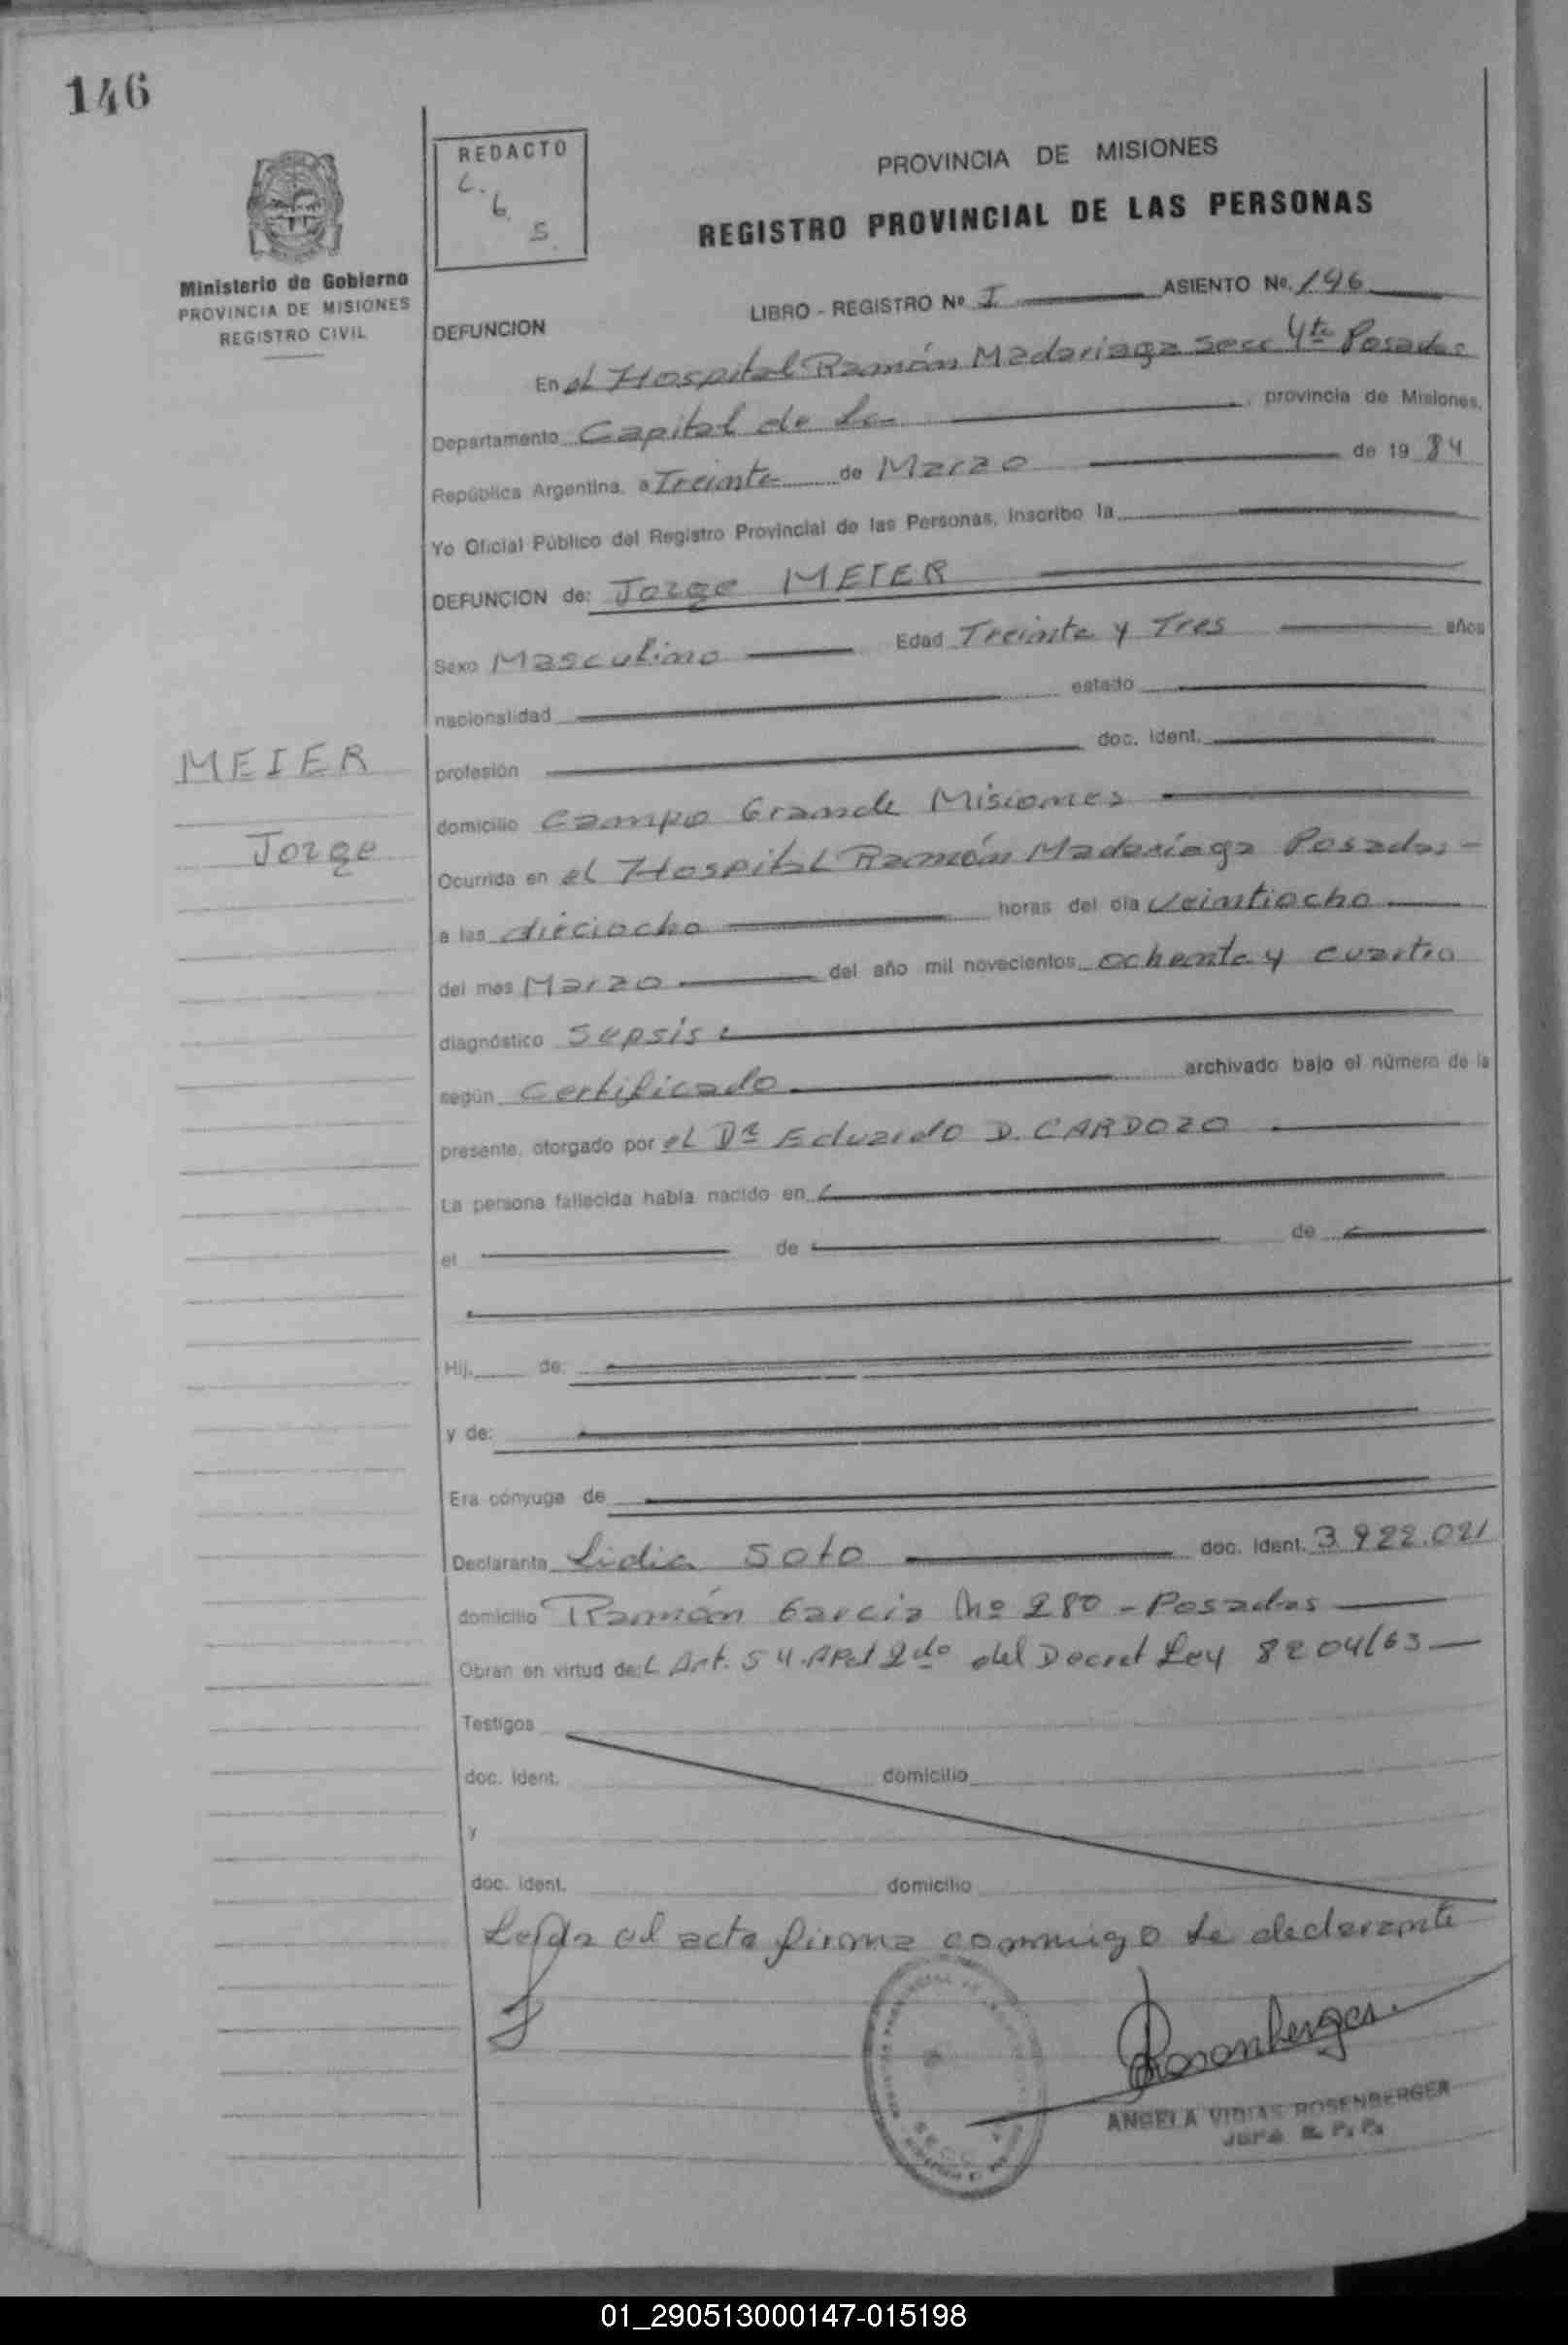 146
REDACTO
L.
6.
S.
Ministerio de Gobierno
PROVINCIA DE MISIONES
REGISTRO CIVIL
PROVINCIA DE MISIONES
REGISTRO PROVINCIAL DE LAS PERSONAS
DEFUNCION
LIBRO - REGISTRO Nº I ASIENTO Nº. 196
En el Hospital Ramón Madariaga Secc 4ta Posadas
Departamento Capital de La provincia de Misiones,
República Argentina, a Treinta de Marzo de 1984
Yo Oficial Público del Registro Provincial de las Personas, inscribo la
DEFUNCION de: Jorge MEIER
Sexo Masculino Edad Treinta y Tres años
nacionalidad estado
MEIER
Jorge
profesión doc. ident.
domicilio Campo Grande Misiones
Ocurrida en el Hospital Ramón Madariaga Posadas -
a las dieciocho horas del día veintiocho
del mes Marzo del año mil novecientos ochenta y cuatro
diagnóstico Sepsis
según Certificado archivado bajo el número de la
presente, otorgado por el Dr Eduardo D. CARDOZO
La persona fallecida había nacido en
el de de
Hij de:
y de:
Era cónyuge de
Declarante Lidia Soto doc. ident. 3.922.021
domicilio Ramón Garcia Nº 280 - Posadas
Obran en virtud del Art. 54 Apd 2do del Decret Ley 8204/63
Testigos
doc. ident. domicilio
y
doc. ident. domicilio
Leída el acta firma conmigo la declarante
Rosenberger
ANGELA VIDIAS ROSENBERGER
R. P. P.
01_290513000147-015198